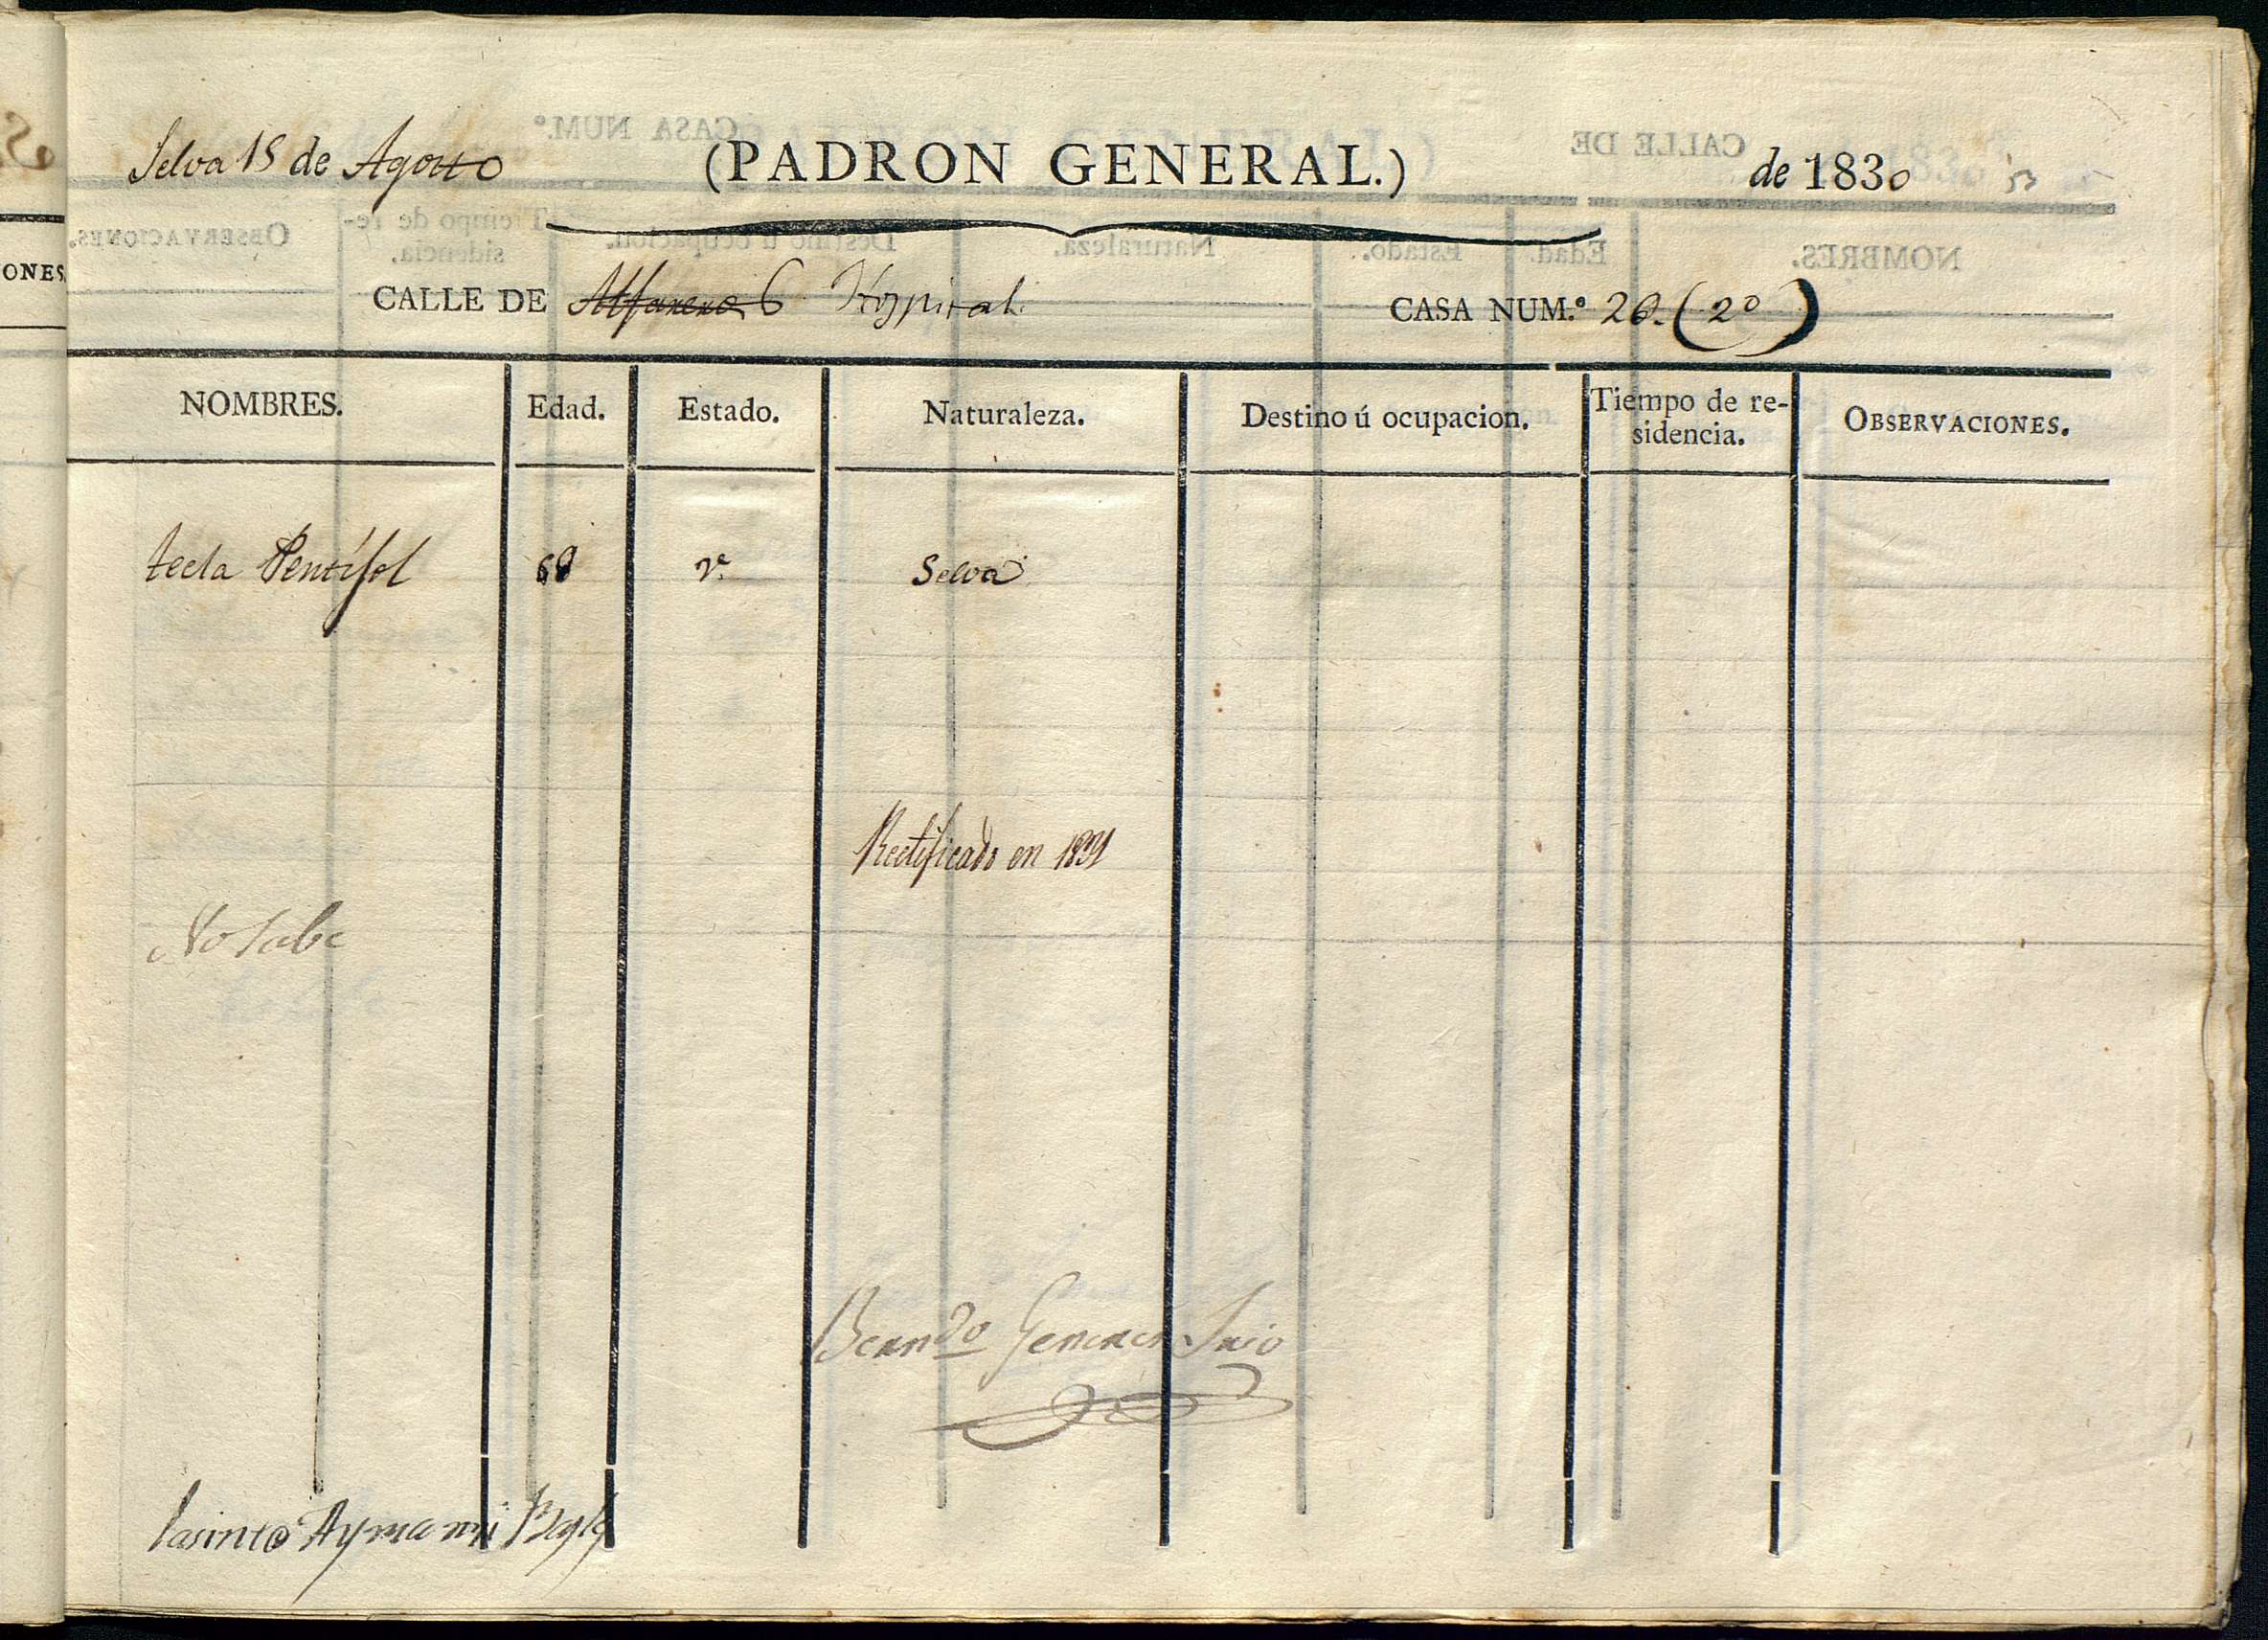 Selva 15 de Agosto (PADRON GENERAL.) de 1830
ONES.
CALLE DE Alfarero 6 Hospital. CASA NUM.º 20. (20)
NOMBRES. Edad. Estado. Naturaleza. Destino ú ocupacion. Tiempo de re-
sidencia. OBSERVACIONES.
tecla Pentifol 68 vª Selva
Rectificado en 1831
No Sabe
Berndo Gener Srio
Jasinto Aymami